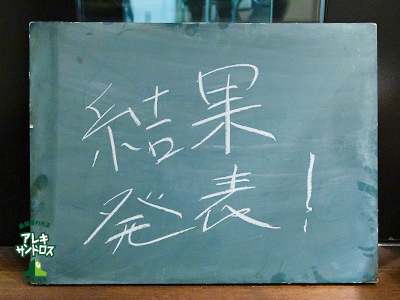 結果
発表!
アレキ
サンドロス